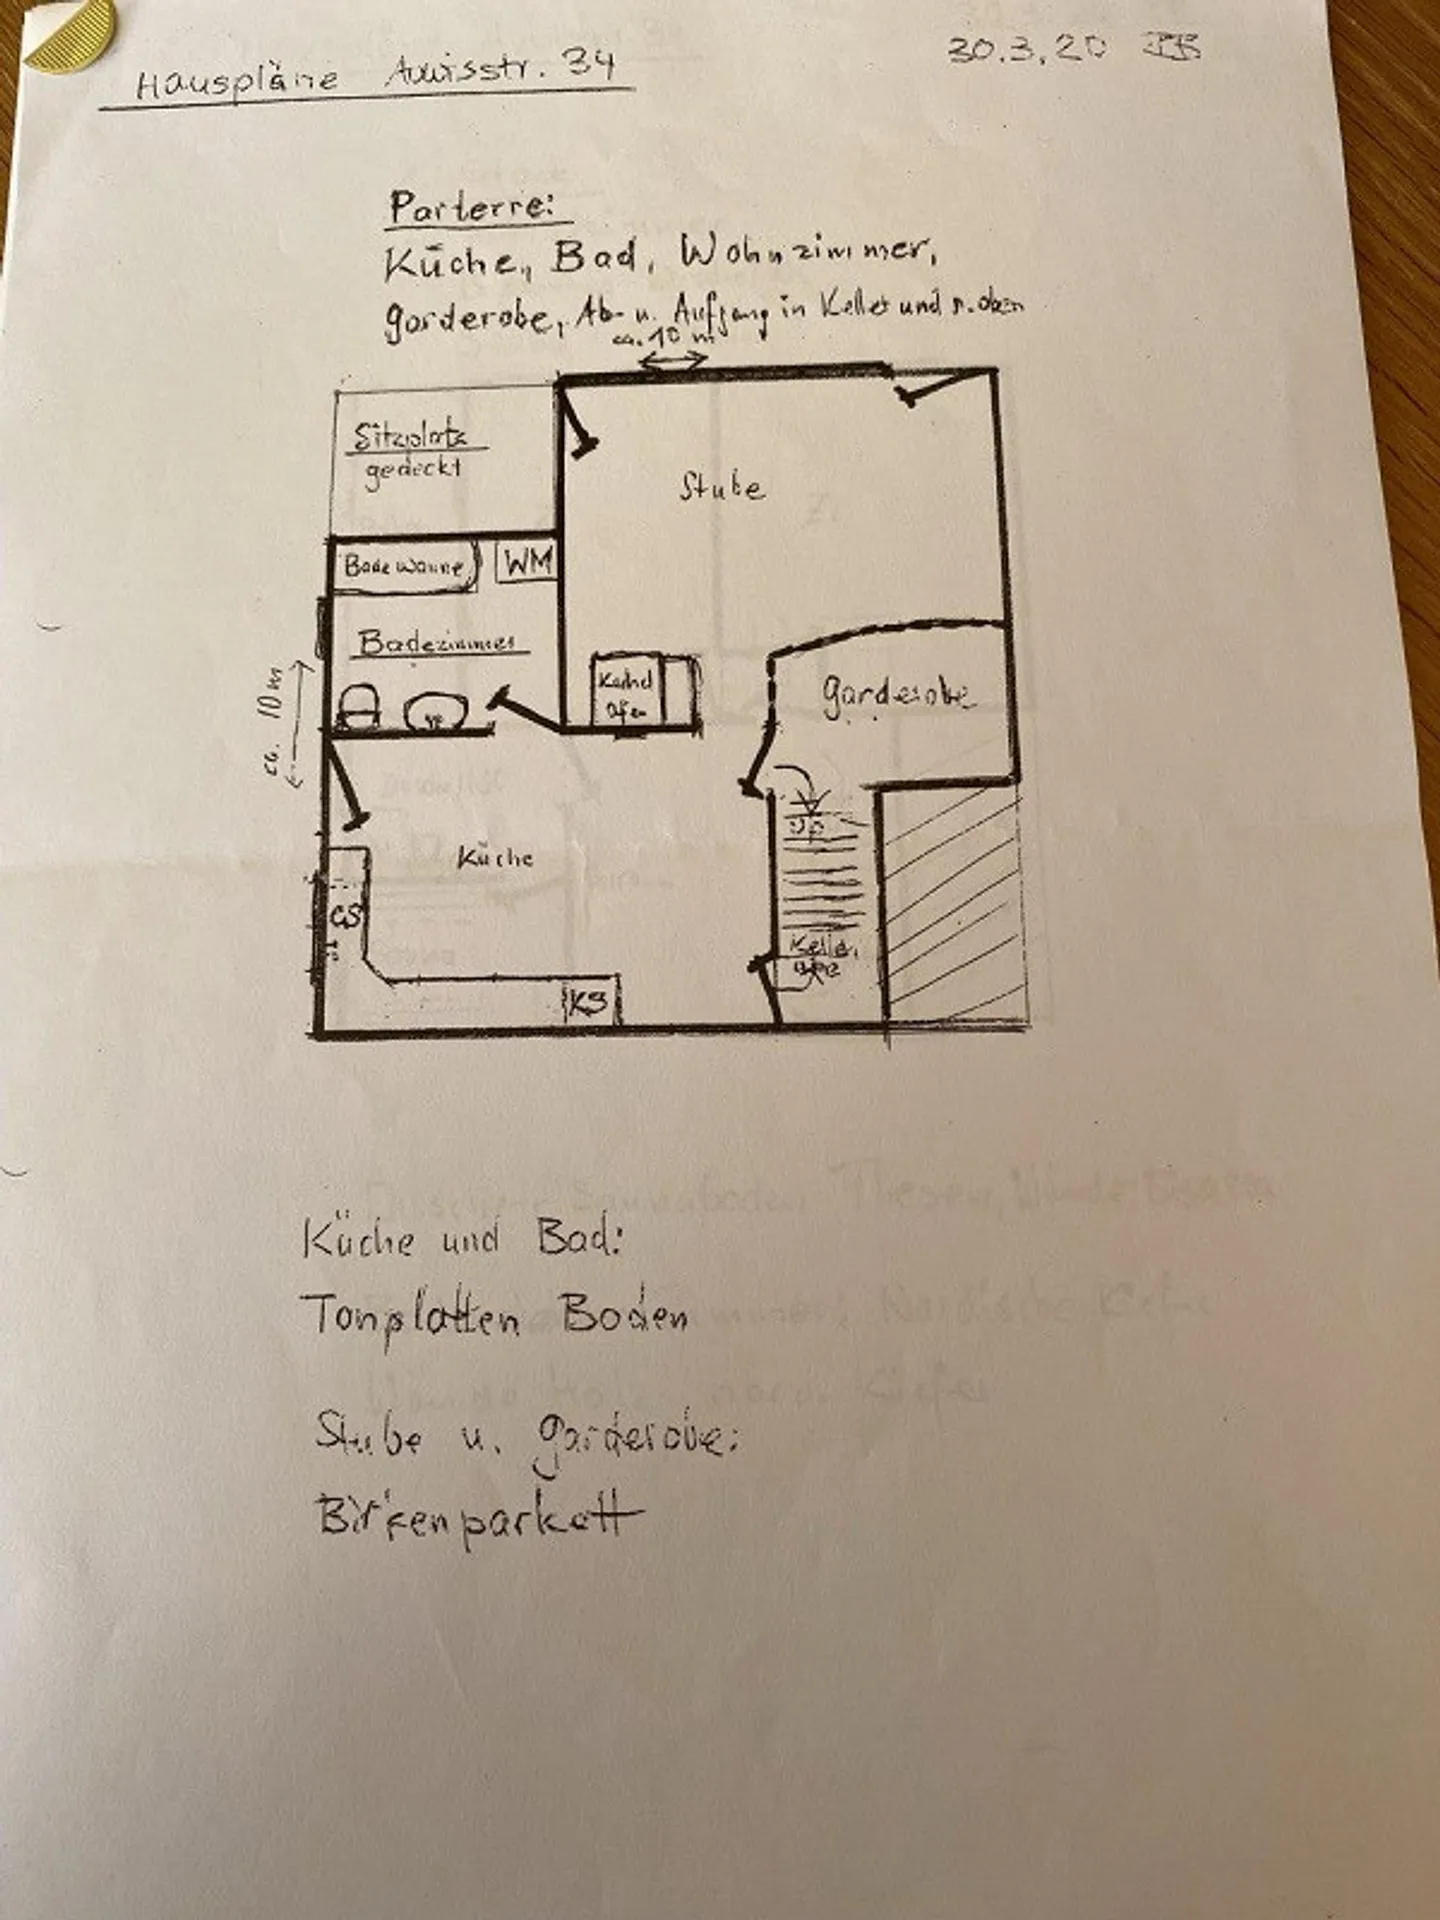 Hauspläne Auwisstr. 34
30.3.20
Parterre:
Küche, Bad, Wohnzimmer,
Garderobe, Ab- u. Aufgang in Keller und n. oben
ca. 10 m
Sitzplatz
gedeckt
Stube
Badewanne
WM
Badezimmer
ca. 10 m
Kachel
Ofen
Garderobe
Küche
up
GS
Keller
KS
Küche und Bad:
Tonplatten Boden
Stube u. Garderobe:
Birkenparkett